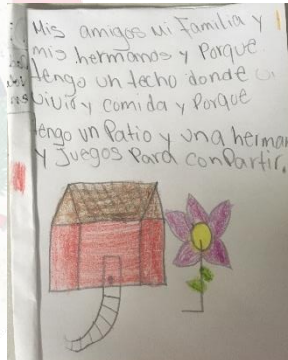 Mis amigos mi Familia y
mis hermanos y Porque
tengo un techo donde
vivir y comida y Porque
tengo un Patio y una herman
y Juegos Para conPartir.